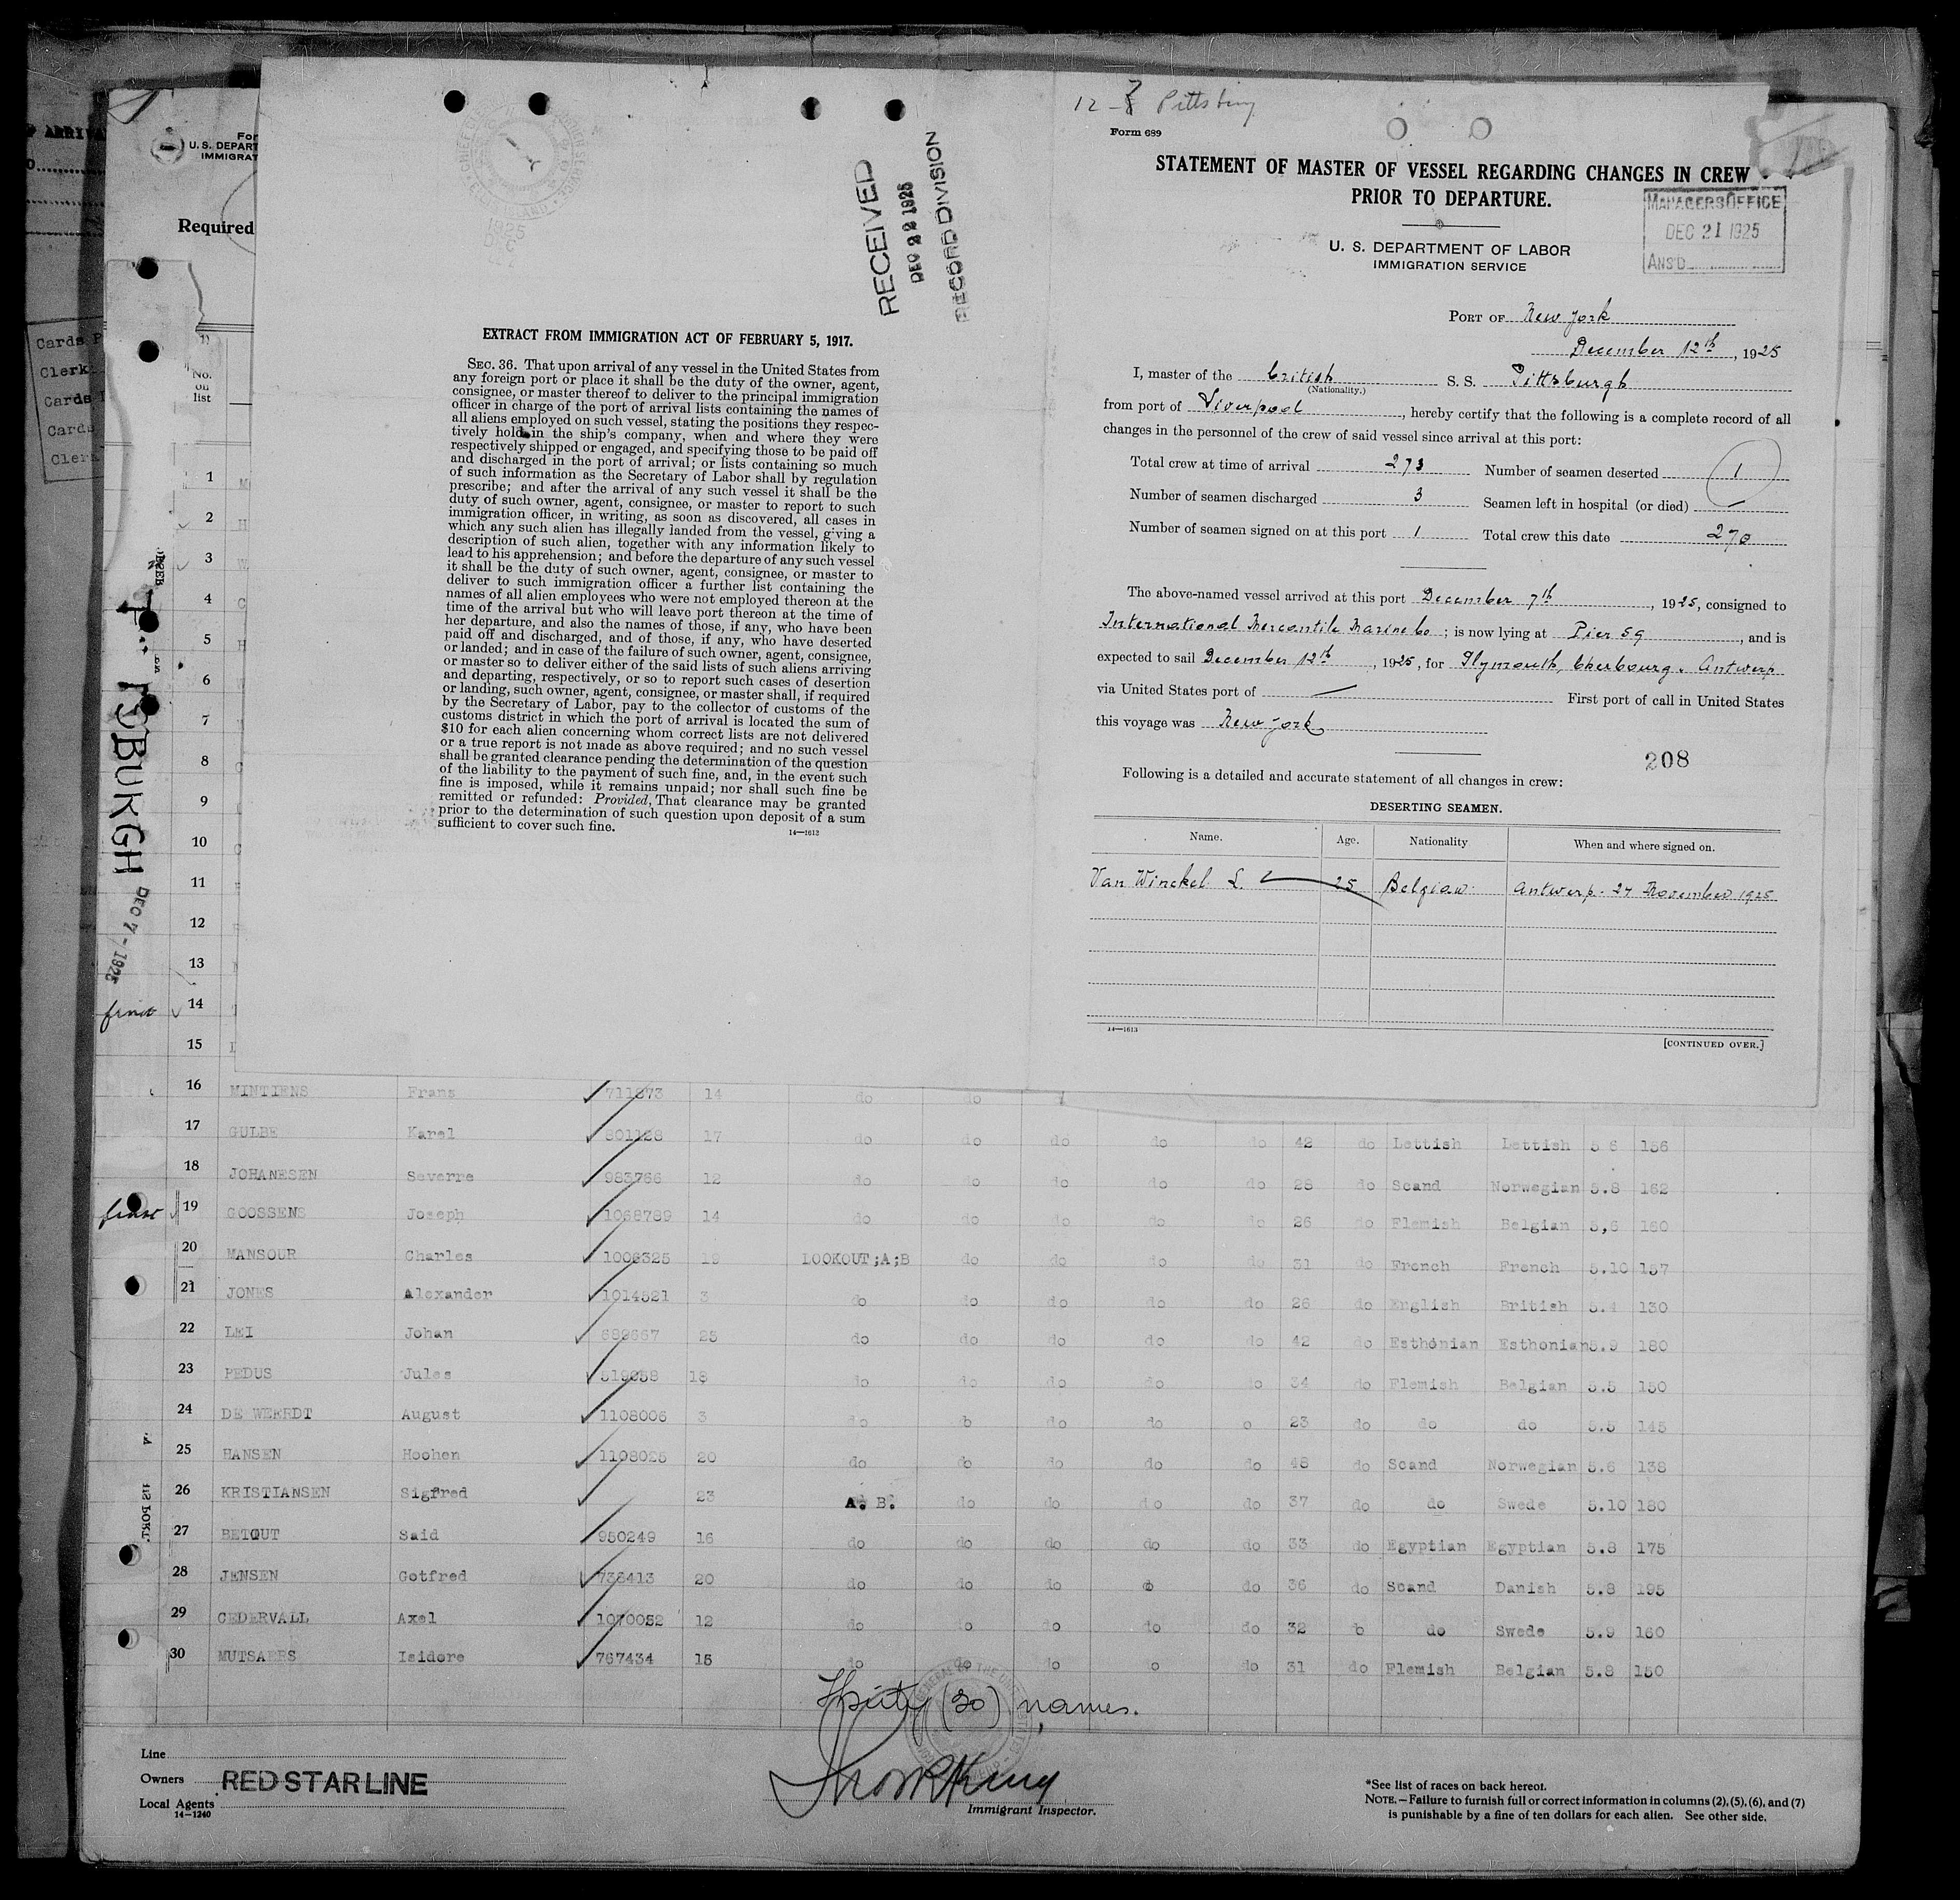 12-7 Pittsburg
Form 689
STATEMENT OF MASTER OF VESSEL REGARDING CHANGES IN CREW
PRIOR TO DEPARTURE.
U. S. DEPARTMENT OF LABOR
IMMIGRATION SERVICE
MANAGERS OFFICE
DEC 21 1925
ANS'D
PORT OF New York
December 12th, 1925
I, master of the British S. S. Pittsburgh
(Nationality.)
from port of Liverpool, hereby certify that the following is a complete record of all
changes in the personnel of the crew of said vessel since arrival at this port:
Total crew at time of arrival 273 Number of seamen deserted 1
Number of seamen discharged 3 Seamen left in hospital (or died) —
Number of seamen signed on at this port 1 Total crew this date 270
The above-named vessel arrived at this port December 7th, 1925, consigned to
International Mercantile Marine Co; is now lying at Pier 59, and is
expected to sail December 12th, 1925, for Plymouth, Cherbourg. Antwerp
via United States port of — First port of call in United States
this voyage was New York
208
Following is a detailed and accurate statement of all changes in crew:
DESERTING SEAMEN.
Name. Age. Nationality When and where signed on.
Van Winckel L. 25 Belgian Antwerp. 27 November 1925
14—1613
[CONTINUED OVER.]
RECEIVED
DEC 22 1925
RECORD DIVISION
EXTRACT FROM IMMIGRATION ACT OF FEBRUARY 5, 1917.
SEC. 36. That upon arrival of any vessel in the United States from
any foreign port or place it shall be the duty of the owner, agent,
consignee, or master thereof to deliver to the principal immigration
officer in charge of the port of arrival lists containing the names of
all aliens employed on such vessel, stating the positions they respec-
tively hold in the ship's company, when and where they were
respectively shipped or engaged, and specifying those to be paid off
and discharged in the port of arrival; or lists containing so much
of such information as the Secretary of Labor shall by regulation
prescribe; and after the arrival of any such vessel it shall be the
duty of such owner, agent, consignee, or master to report to such
immigration officer, in writing, as soon as discovered, all cases in
which any such alien has illegally landed from the vessel, giving a
description of such alien, together with any information likely to
lead to his apprehension; and before the departure of any such vessel
it shall be the duty of such owner, agent, consignee, or master to
deliver to such immigration officer a further list containing the
names of all alien employees who were not employed thereon at the
time of the arrival but who will leave port thereon at the time of
her departure, and also the names of those, if any, who have been
paid off and discharged, and of those, if any, who have deserted
or landed; and in case of the failure of such owner, agent, consignee,
or master so to deliver either of the said lists of such aliens arriving
and departing, respectively, or so to report such cases of desertion
or landing, such owner, agent, consignee, or master shall, if required
by the Secretary of Labor, pay to the collector of customs of the
customs district in which the port of arrival is located the sum of
$10 for each alien concerning whom correct lists are not delivered
or a true report is not made as above required; and no such vessel
shall be granted clearance pending the determination of the question
of the liability to the payment of such fine, and, in the event such
fine is imposed, while it remains unpaid; nor shall such fine be
remitted or refunded: Provided, That clearance may be granted
prior to the determination of such question upon deposit of a sum
sufficient to cover such fine.
14—1613
U. S. DEPART
IMMIGRAT
Required
No.
on
list
1
2
3
4
5
6
7
8
9
10
11
12
13
14
15
DEC 7 - 1925
16 MINTIENS Frans 711873 14 do do
17 GULBE Karel 801128 17 do do do do do 42 do Lettish Lettish 5 6 156
18 JOHANESEN Severre 983766 12 do do do do do 28 do Scand Norwegian 5.8 162
19 GOOSSENS Joseph 1068789 14 do do do do do 26 do Flemish Belgian 5,6 160
20 MANSOUR Charles 1006325 19 LOOKOUT;A;B do do do do 31 do French French 5.10 157
21 JONES Alexander 1014521 3 do do do do do 26 do English British 5.4 130
22 LEI Johan 689667 25 do do do do do 42 do Esthonian Esthonian 5.9 180
23 PEDUS Jules 519858 18 do do do do do 34 do Flemish Belgian 5.5 150
24 DE WEERDT August 1108006 3 do do do do o 23 do do do 5.5 145
25 HANSEN Hoohen 1108025 20 do do do do do 48 do Scand Norwegian 5.6 138
26 KRISTIANSEN Sigfred 23 A. B. do do do do 37 do do Swede 5.10 180
27 BETOUT Said 950249 16 do do do do do 33 do Egyptian Egyptian 5.8 175
28 JENSEN Gotfred 738413 20 do do do do do 36 do Scand Danish 5.8 195
29 CEDERVALL Axel 1070052 12 do do do do do 32 do do Swede 5.9 160
30 MUTSAERS Isidore 767434 15 do do do o do 31 do Flemish Belgian 5.8 150
Thirty (30) names.
Line
Owners RED STAR LINE
Local Agents
14—1240
Immigrant Inspector.
*See list of races on back hereof.
NOTE.—Failure to furnish full or correct information in columns (2), (5), (6), and (7)
is punishable by a fine of ten dollars for each alien. See other side.